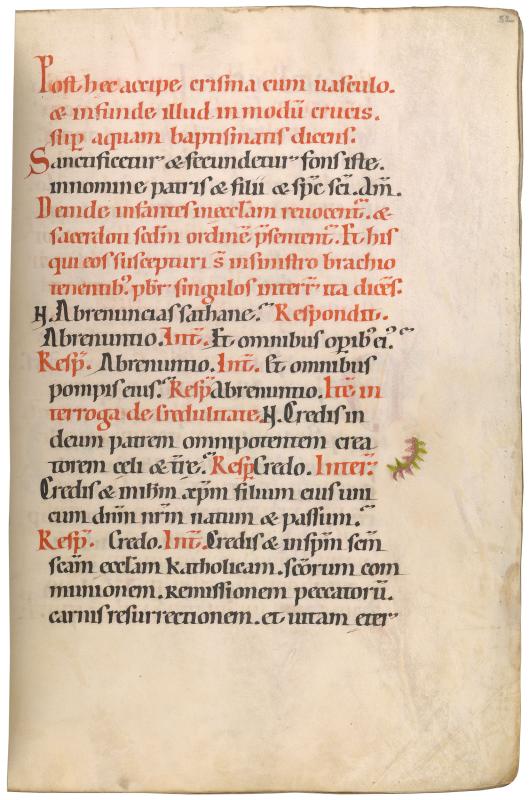 52
Post hec accipe crisma cum uasculo.
& infunde illud in modū crucis.
sup̱ aquam baptismatis dicens:
Sanctificetur & fecundetur fons iste.
in nomine patris & filii & sp̄c sc̄i. Am̄.
Deinde infantes in eccl̄am reuocent̄. &
sacerdoti sedm̄ ordinē p̄sentent̄. Et his
qui eos suscepturi s̄ in sinistro brachio
tenentib; pb̄r singulos interr̄ ita dicēs:
N. Abrenuncias sathane. Respondit.
Abrenuntio. Int̄. Et omnibus op̱ib; ei;.
Resp̄. Abrenuntio. Int̄. Et omnibus
pompis eius. Resp̄ Abrenuntio. Itē in
terroga de credulitate. N. Credis in
deum patrem omnipotentem crea
torem celi & tr̄e. Resp̄ Credo. Inter̄.
Credis & in ih̄m xp̄m filium eius uni
cum dn̄m nr̄m natum & passum.
Resp̄. Credo. Int̄. Credis & in sp̄m sc̄m
sc̄am eccl̄am katholicam. sc̄orum com
munionem. Remissionem peccatorū.
carnis resurrectionem. et uitam eter